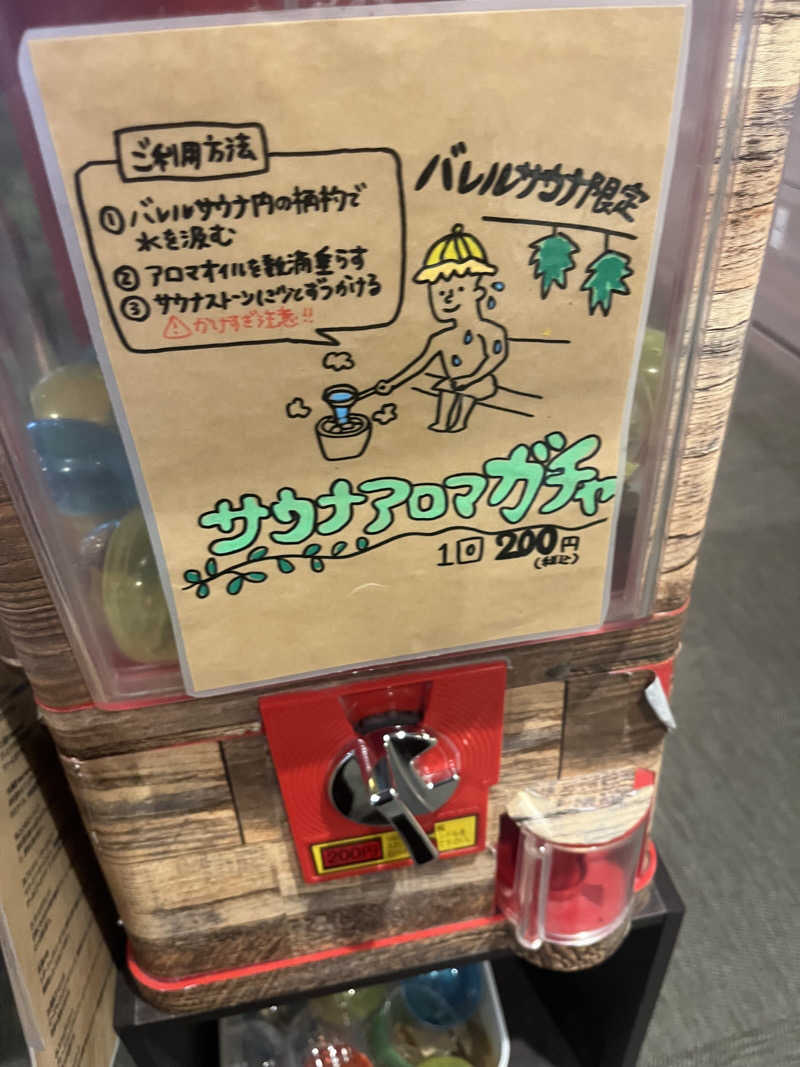 ご利用方法
① バレルサウナ内の柄杓で
水を汲む
② アロマオイルを数滴垂らす
③ サウナストーンに少しずつかける
⚠かけすぎ注意!!
バレルサウナ限定
サウナアロマガチャ
1回 200円
(税込)
200円